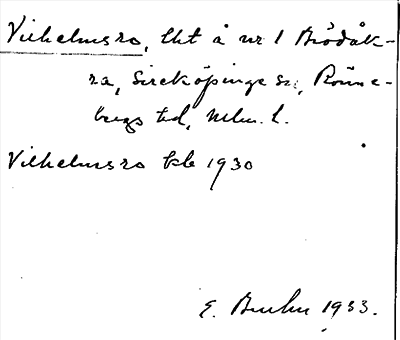 Vilhelmsro, lht å nr 1 Brödåk-
ra, Sireköpinge sn, Rönne-
bergs hd, Mlm. l.
Vilhelmsro kbl 1930
E. Bruhn 1933.